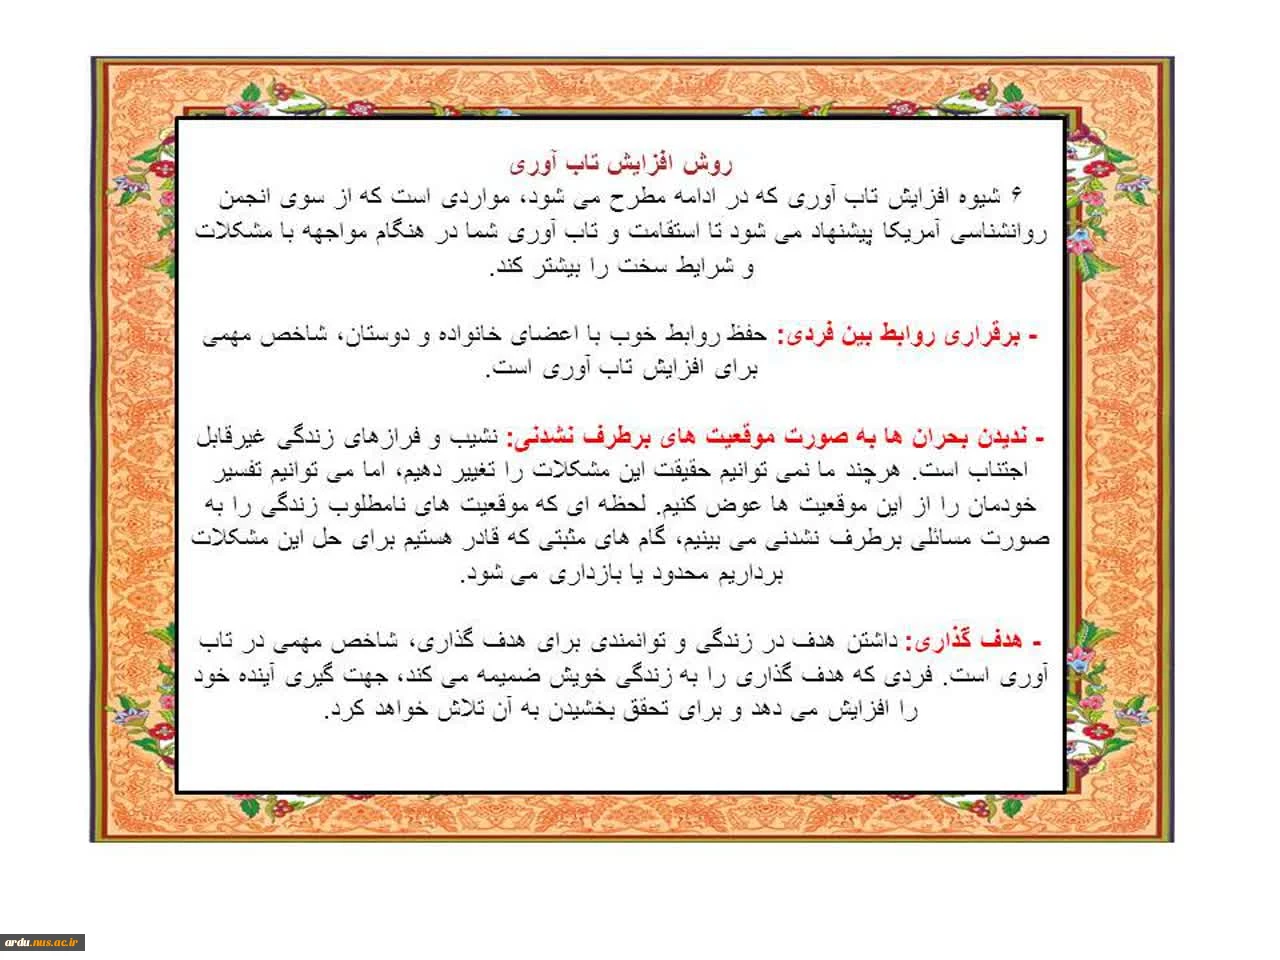 روش افزایش تاب آوری
۶ شیوه افزایش تاب آوری که در ادامه مطرح می شود، مواردی است که از سوی انجمن
روانشناسی آمریکا پیشنهاد می شود تا استقامت و تاب آوری شما در هنگام مواجهه با مشکلات
و شرایط سخت را بیشتر کند.
- برقراری روابط بین فردی: حفظ روابط خوب با اعضای خانواده و دوستان، شاخص مهمی
برای افزایش تاب آوری است.
- ندیدن بحران ها به صورت موقعیت های برطرف نشدنی: نشیب و فرازهای زندگی غیرقابل
اجتناب است. هرچند ما نمی توانیم حقیقت این مشکلات را تغییر دهیم، اما می توانیم تفسیر
خودمان را از این موقعیت ها عوض کنیم. لحظه ای که موقعیت های نامطلوب زندگی را به
صورت مسائلی برطرف نشدنی می بینیم، گام های مثبتی که قادر هستیم برای حل این مشکلات
برداریم محدود یا بازداری می شود.
- هدف گذاری: داشتن هدف در زندگی و توانمندی برای هدف گذاری، شاخص مهمی در تاب
آوری است. فردی که هدف گذاری را به زندگی خویش ضمیمه می کند، جهت گیری آینده خود
را افزایش می دهد و برای تحقق بخشیدن به آن تلاش خواهد کرد.
ardu.nus.ac.ir